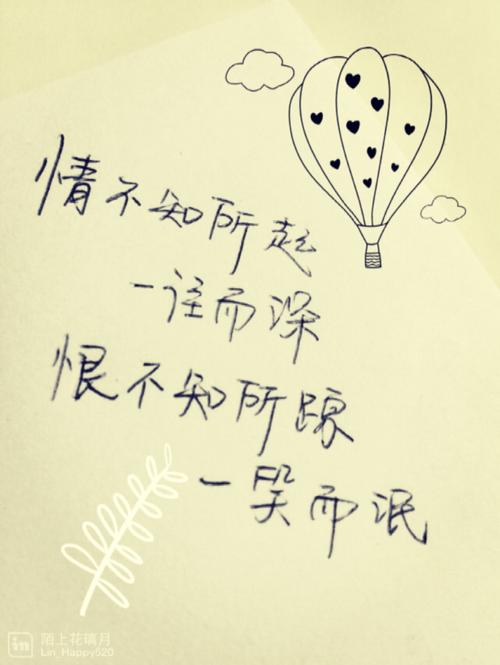 情不知所起
一往而深
恨不知所踪
一笑而泯
in 陌上花璃月
Lin_Happy520